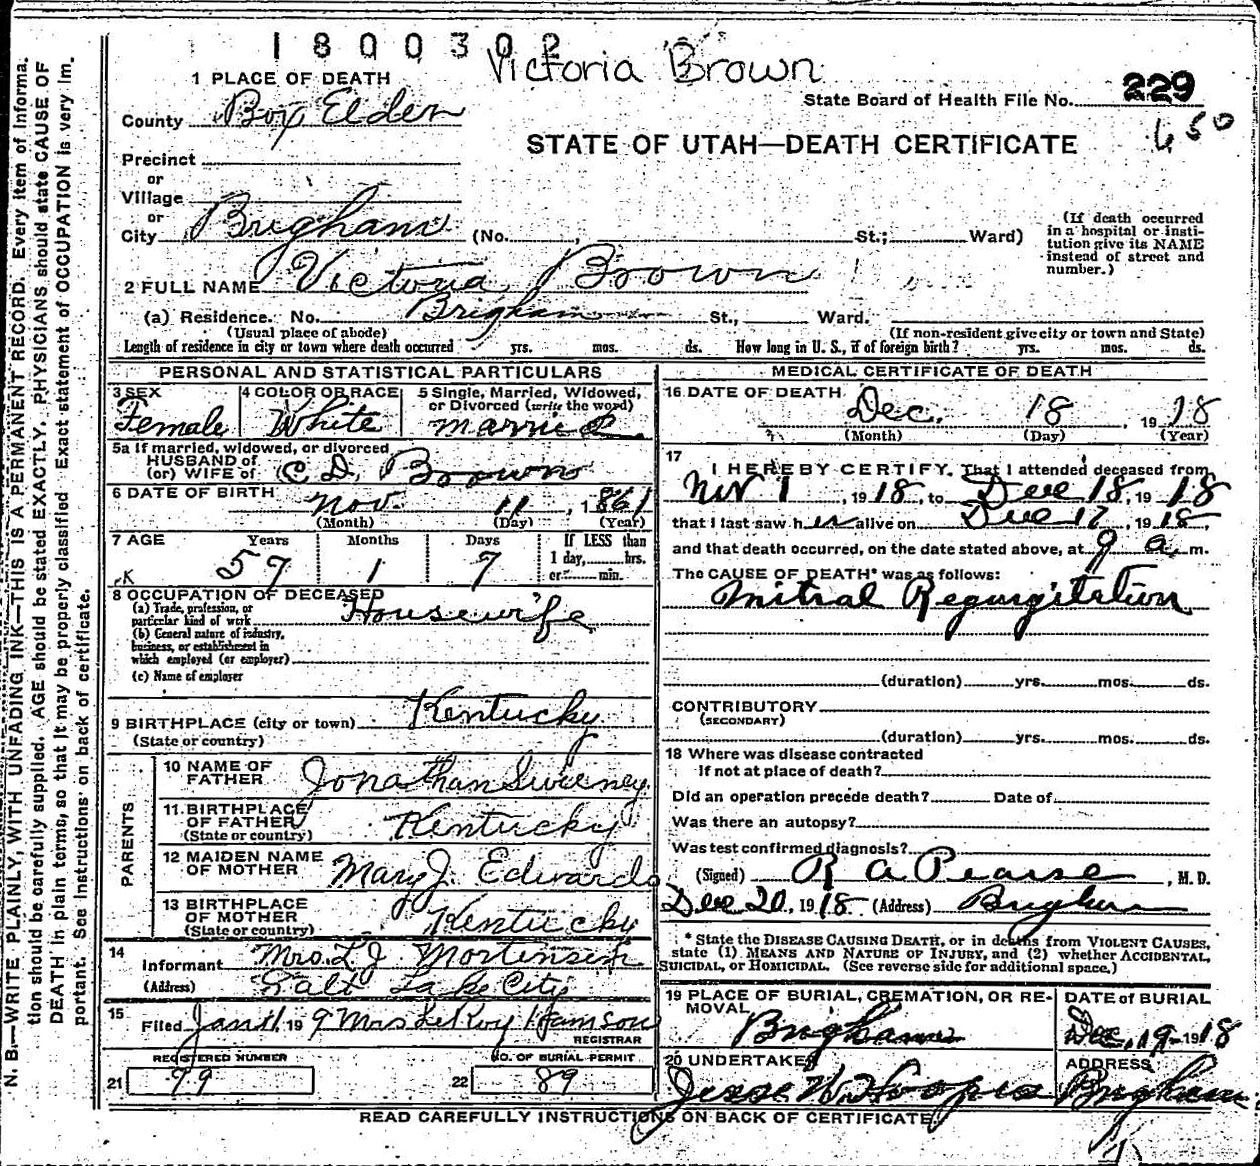 1800302
Victoria Brown
1 PLACE OF DEATH
State Board of Health File No. 229
County Box Elder
650
STATE OF UTAH—DEATH CERTIFICATE
Precinct
or
Village
or
City Brigham (No. , St.; Ward)
(If death occurred in a hospital or insti-
tution give its NAME instead of street and number.)
2 FULL NAME Victoria Brown
(a) Residence. No. Brigham St., Ward.
(Usual place of abode) (If non-resident give city or town and State)
Length of residence in city or town where death occurred yrs. mos. ds. How long in U. S., if of foreign birth? yrs. mos. ds.
PERSONAL AND STATISTICAL PARTICULARS
3 SEX Female
4 COLOR OR RACE White
5 Single, Married, Widowed, or Divorced (write the word) Married
5a If married, widowed, or divorced
HUSBAND of
(or) WIFE of C. D. Brown
6 DATE OF BIRTH Nov. 11, 1861
(Month) (Day) (Year)
7 AGE Years Months Days If LESS than
57 1 7 1 day, hrs.
or min.
8 OCCUPATION OF DECEASED
(a) Trade, profession, or
particular kind of work Housewife
(b) General nature of industry,
business, or establishment in
which employed (or employer)
(c) Name of employer
9 BIRTHPLACE (city or town) Kentucky
(State or country)
PARENTS
10 NAME OF FATHER Jonathan Sweeney
11 BIRTHPLACE OF FATHER Kentucky
(State or country)
12 MAIDEN NAME OF MOTHER Mary J. Edwards
13 BIRTHPLACE OF MOTHER Kentucky
(State or country)
14 Informant Mrs. L. J. Mortensen
(Address) Salt Lake City
15 Filed Jan 11, 19 9 Mrs LeRoy Hamson
REGISTRAR
REGISTERED NUMBER
21 79
NO. OF BURIAL PERMIT
22 89
MEDICAL CERTIFICATE OF DEATH
16 DATE OF DEATH Dec. 18 1918
(Month) (Day) (Year)
17
I HEREBY CERTIFY, That I attended deceased from
Nov 1, 1918, to Dec 18, 1918
that I last saw her alive on Dec 17, 1918,
and that death occurred, on the date stated above, at 9 a. m.
The CAUSE OF DEATH* was as follows:
Mitral Regurgitation
(duration) yrs. mos. ds.
CONTRIBUTORY
(SECONDARY)
(duration) yrs. mos. ds.
18 Where was disease contracted
If not at place of death?
Did an operation precede death? Date of
Was there an autopsy?
Was test confirmed diagnosis?
(Signed) R A Pearse, M. D.
Dec 20, 1918 (Address) Brigham
* State the DISEASE CAUSING DEATH, or in deaths from VIOLENT CAUSES,
state (1) MEANS AND NATURE OF INJURY, and (2) whether ACCIDENTAL,
SUICIDAL, or HOMICIDAL. (See reverse side for additional space.)
19 PLACE OF BURIAL, CREMATION, OR RE-
MOVAL Brigham
DATE of BURIAL
Dec, 19-1918
20 UNDERTAKER
Jesse W. Hoopes
ADDRESS
Brigham
READ CAREFULLY INSTRUCTIONS ON BACK OF CERTIFICATE
N. B.—WRITE PLAINLY, WITH UNFADING INK—THIS IS A PERMANENT RECORD. Every item of informa-
tion should be carefully supplied. AGE should be stated EXACTLY. PHYSICIANS should state CAUSE OF
DEATH in plain terms, so that it may be properly classified. Exact statement of OCCUPATION is very im-
portant. See instructions on back of certificate.